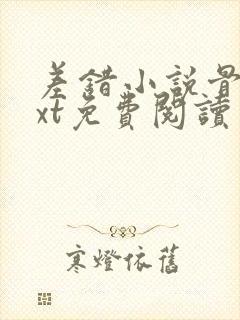 差錯小說最
xt免費閱讀
寒燈依舊